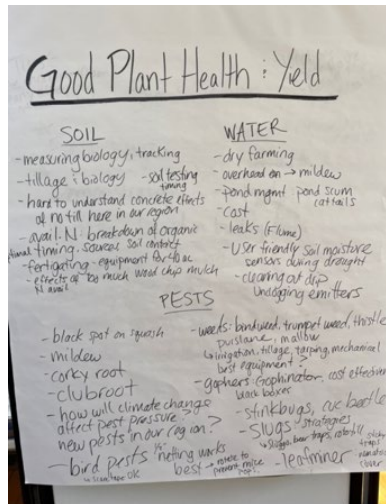 Good Plant Health & Yield
SOIL
- measuring biology, tracking
- tillage & biology - soil testing
timing
- hard to understand concrete effects
of no till here in our region
- avail. N. breakdown of organic
timing. sources soil contract
- fertigating - equipment for 40 ac
- effects of too much wood chip mulch
N avail.
WATER
- dry farming
- overhead on → mildew
- pond mgmt pond scum
cattails
- cost
- leaks (Flume)
- User friendly soil moisture
sensors during drought
- cleaning out drip
unclogging emitters
PESTS
- black spot on squash
- mildew
- corky root
- clubroot
- how will climate change
affect pest pressure?
new pests in our region?
- bird pests netting works
best → rotate to
prevent mice
pops.
- weeds: bindweed, trumpet weed, thistle
purslane, mallow
irrigation, tillage, tarping, mechanical
best equipment?
- gophers: Gophinator, cost effective
black boxes
- stinkbugs, cuc beetle
- slugs - strategies
Sluggo, beer traps, rototill
- leafminer